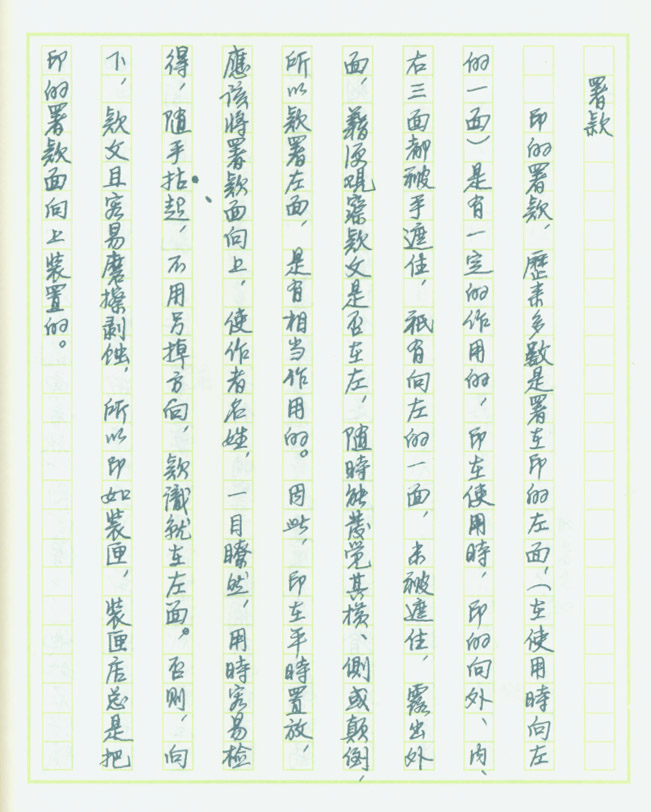 署款
印的署款，歷来多數是署在印的左面，（在使用時向左
的一面）是有一定的作用的，印在使用時，印的向外、内、
右三面都被手遮住，祇有向左的一面，未被遮住，露出外
面，藉便觀察款文是否在左，随時能發覚其横、側或颠倒，
所以款署左面，是有相当作用的。因此，印在平時置放，
應該將署款面向上，使作者名姓，一目瞭然，用時容易檢
得，随手拈起，不用另掉方向，款識就在左面。否则，向
下，款文且容易磨擦剥蝕，所以印如装匣，装匣店总是把
印的署款面向上装置的。